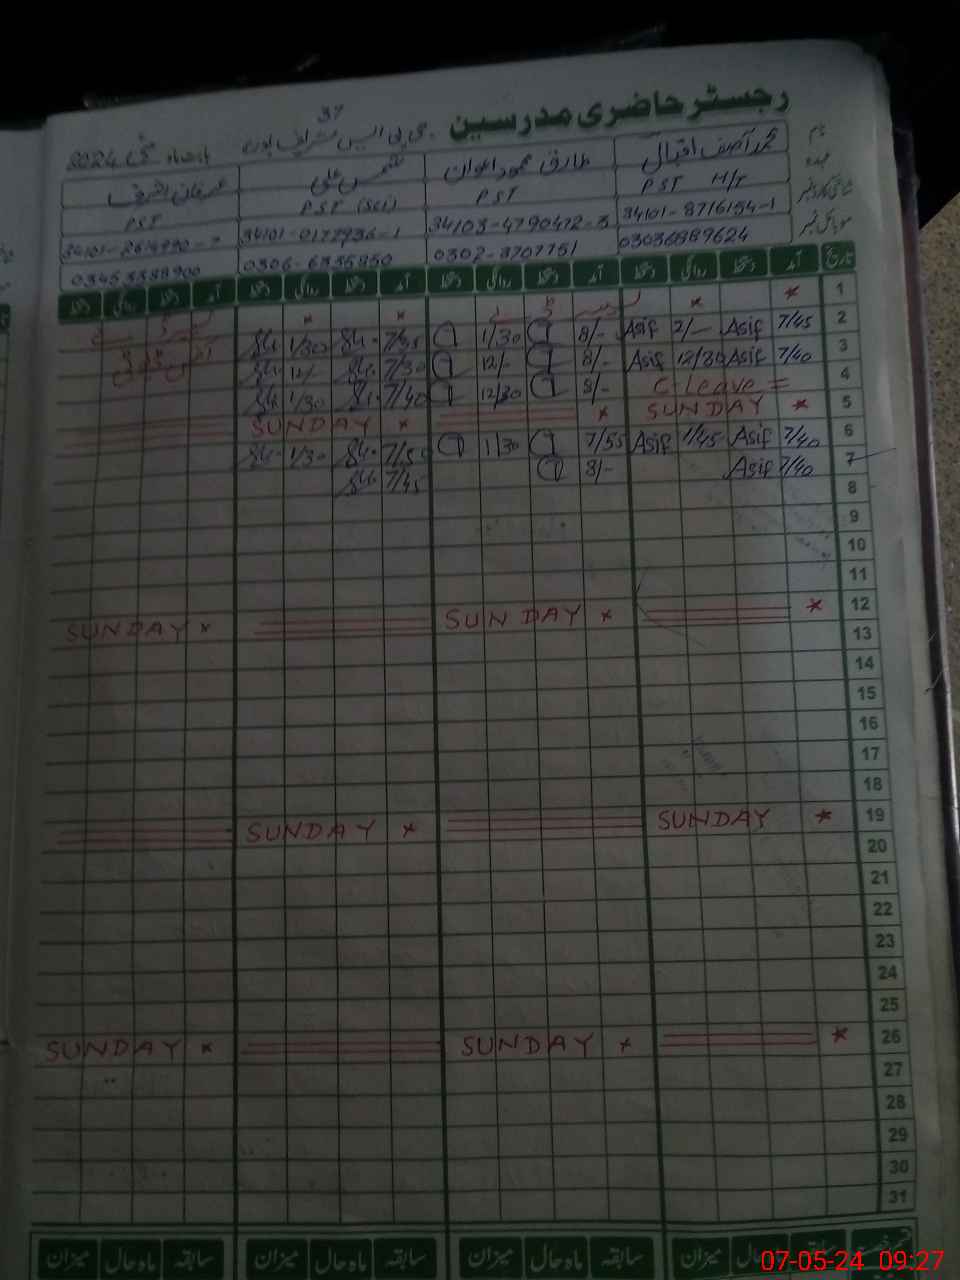 رجسٹر حاضری مدرسین
37
بابت ماہ مئی 2024
نام محمد آصف اقبال طارق محمود اعوان شمس علی عرفان اشرف
عہدہ PST H/T PST PST (Sci) PST
شناختی کارڈ نمبر 34101-8716154-1 34103-4790472-3
موبائل نمبر 03036889624 0302-3707751 0306-6335850
تاریخ آمد دستخط روانگی دستخط آمد دستخط روانگی دستخط آمد دستخط روانگی دستخط آمد دستخط روانگی دستخط
1 * *
2 7/45 Asif 2/- Asif 8/- 1/30 1/30
3 7/40 Asif 12/30 Asif 8/- 12/- 7/30 12/-
4 C-Leave = 8/- 12/30 7/40 1/30
5 * SUNDAY * * SUNDAY
6 7/40 Asif 1/45 Asif 7/55 1/30 7/55 1/30
7 7/40 Asif 8/- 7/45
8
9
10
11
12 * SUNDAY * SUNDAY *
13
14
15
16
17
18
19 * SUNDAY * SUNDAY
20
21
22
23
24
25
26 * SUNDAY * SUNDAY *
27
28
29
30
31
سابقہ ماہ حال میزان سابقہ ماہ حال میزان سابقہ ماہ حال میزان سابقہ ماہ حال میزان
07-05-24 09:27